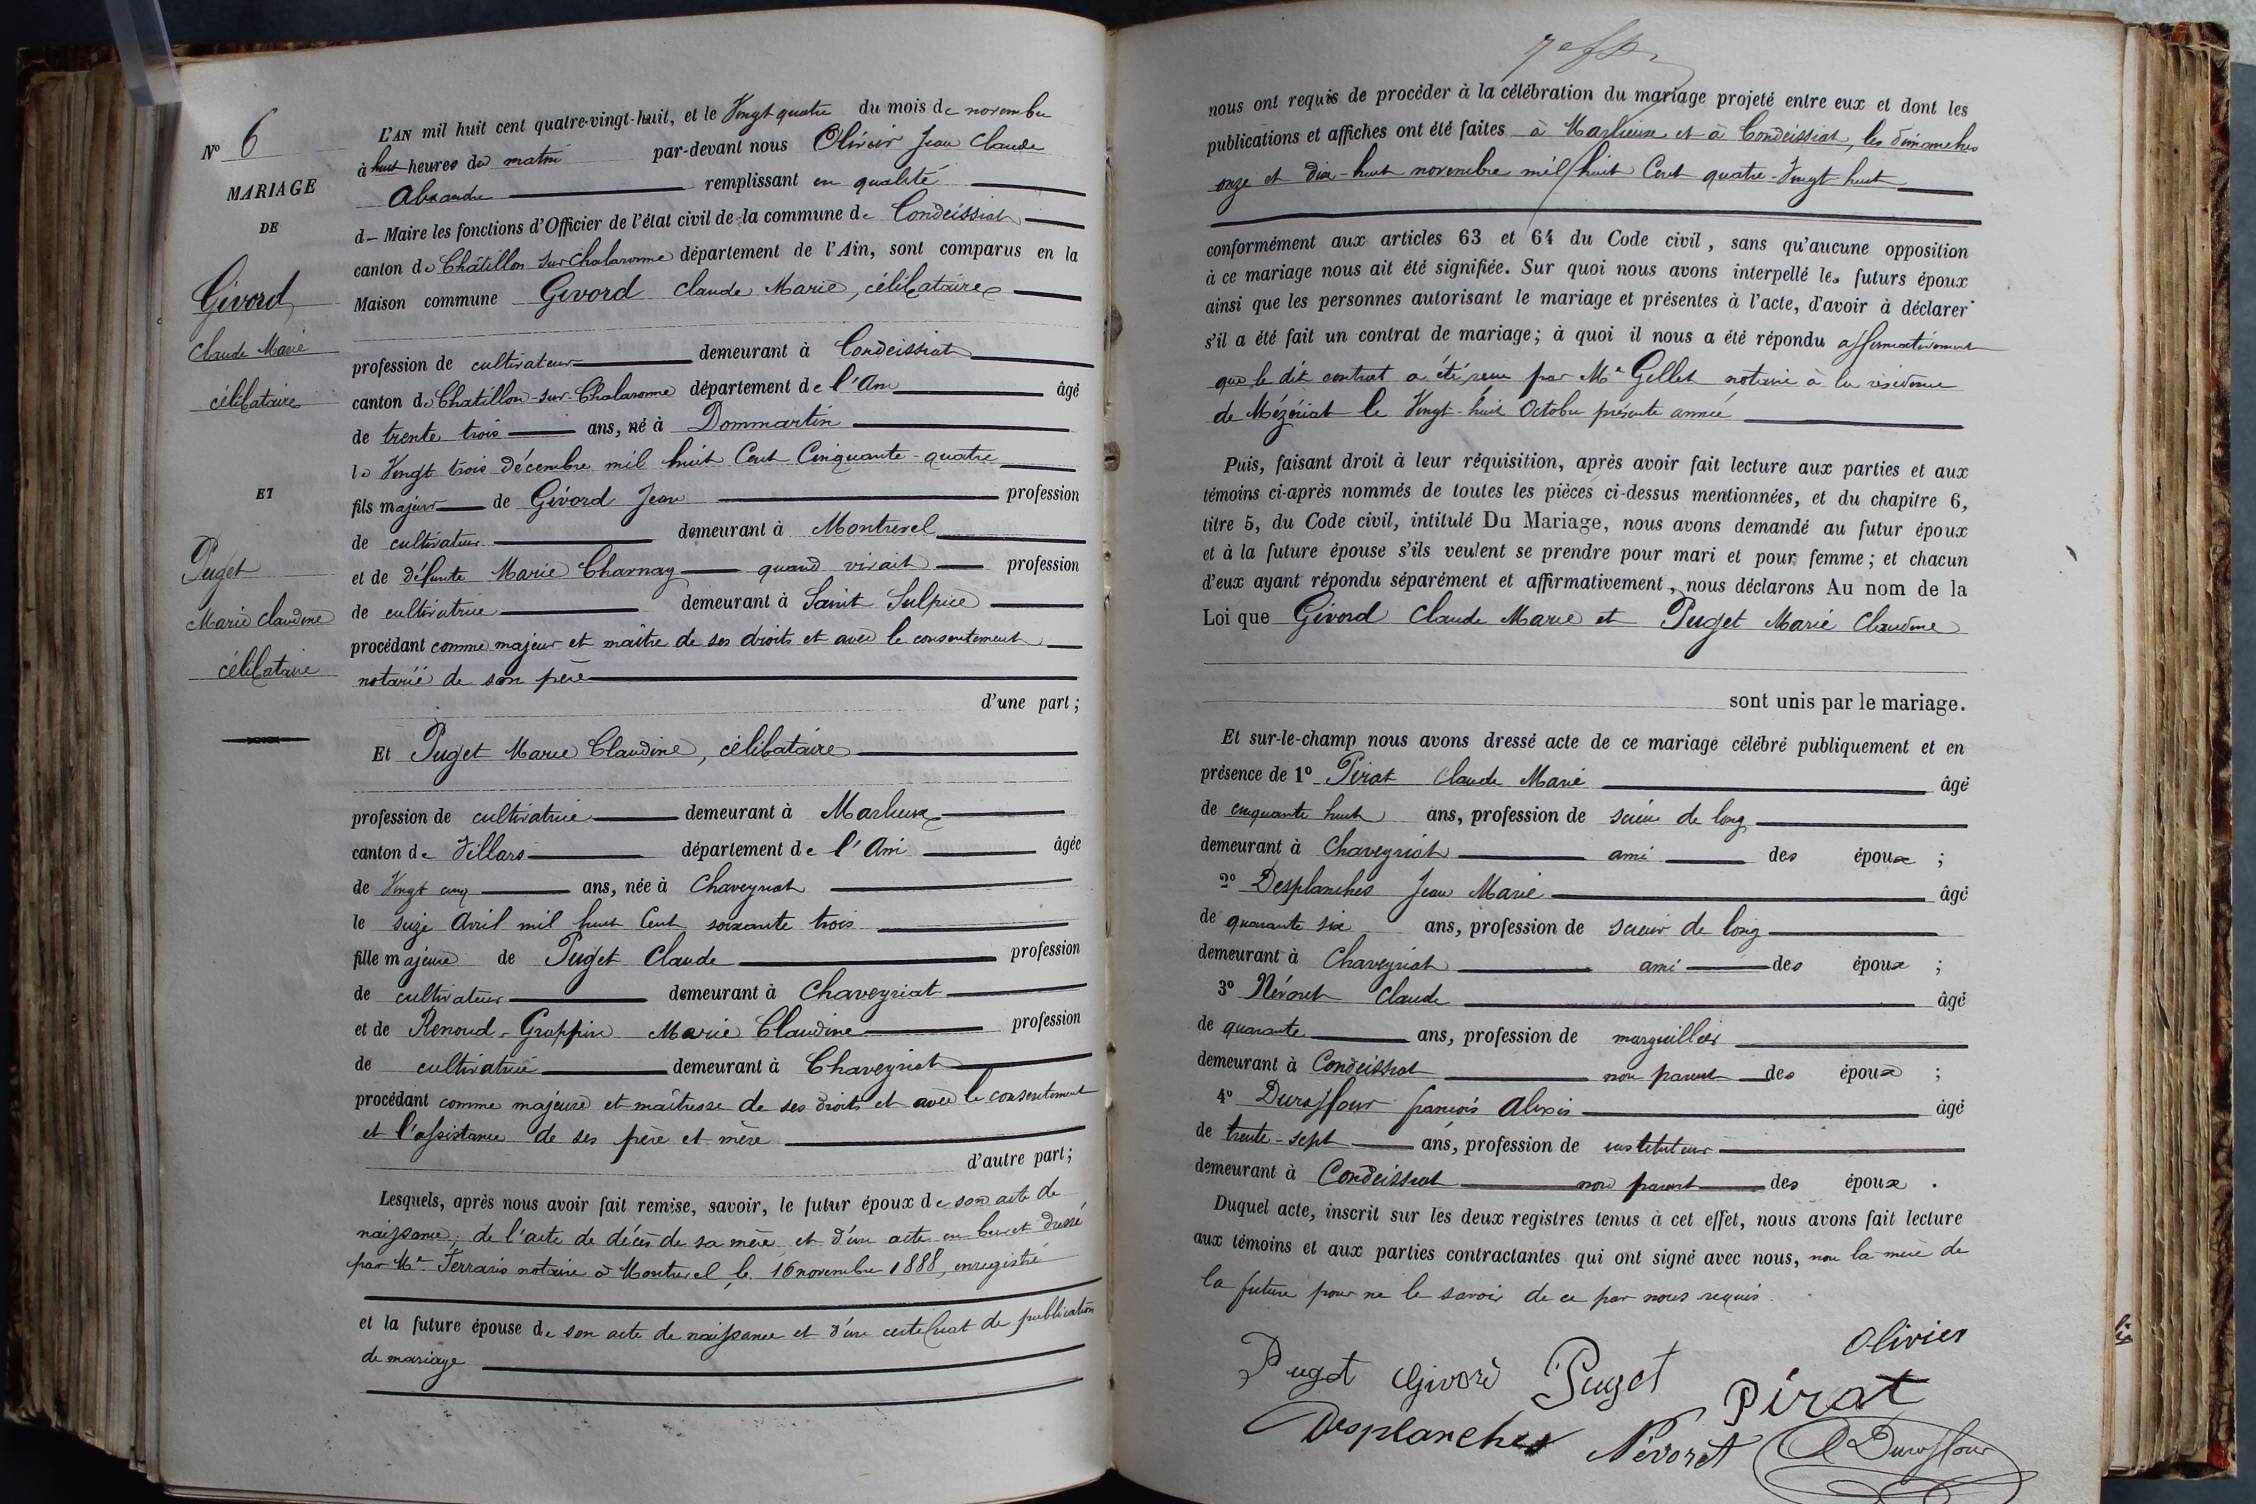 N° 6
MARIAGE
DE
Givord
Claude Marie
célibataire
ET
Puget
Marie Claudine
célibataire
L'AN mil huit cent quatre-vingt-huit, et le Vingt quatre du mois de novembre
à huit heures du matin par-devant nous Olivier Jean Claude
Alexandre remplissant en qualité
d Maire les fonctions d'Officier de l'état civil de la commune de Condeissiat
canton de Châtillon sur Chalaronne département de l'Ain, sont comparus en la
Maison commune Givord Claude Marie, célibataire
profession de cultivateur demeurant à Condeissiat
canton de Chatillon-sur-Chalaronne département de l'Ain âgé
de trente trois ans, né à Dommartin
le Vingt trois décembre mil huit Cent Cinquante-quatre
fils majeur de Givord Jean profession
de cultivateur demeurant à Montrevel
et de défunte Marie Charnay quand vivait profession
de cultivatrice demeurant à Saint Sulpice
procédant comme majeur et maître de ses droits et avec le consentement
notarié de son père
d'une part;
Et Puget Marie Claudine, célibataire
profession de cultivatrice demeurant à Marlieux
canton de Villars département de l'Ain âgée
de Vingt cinq ans, née à Chaveyriat
le seize Avril mil huit Cent soixante trois
fille majeure de Puget Claude profession
de cultivateur demeurant à Chaveyriat
et de Renoud-Grappin Marie Claudine profession
de cultivatrice demeurant à Chaveyriat
procédant comme majeure et maîtresse de ses droits et avec le consentement
et l'assistance de ses père et mère
d'autre part;
Lesquels, après nous avoir fait remise, savoir, le futur époux de son acte de
naissance, de l'acte de décès de sa mère et d'un acte en brevet dressé
par Me Ferraris notaire à Montrevel, le 16 novembre 1888, enregistré
et la future épouse de son acte de naissance et d'un certificat de publication
de mariage
nous ont requis de procéder à la célébration du mariage projeté entre eux et dont les
publications et affiches ont été faites à Marlieux et à Condeissiat, les dimanches
onze et dix-huit novembre mil huit Cent quatre-Vingt huit
conformément aux articles 63 et 64 du Code civil, sans qu'aucune opposition
à ce mariage nous ait été signifiée. Sur quoi nous avons interpellé les futurs époux
ainsi que les personnes autorisant le mariage et présentes à l'acte, d'avoir à déclarer
s'il a été fait un contrat de mariage; à quoi il nous a été répondu affirmativement
que le dit contrat a été reçu par Me Gellet notaire à la résidence
de Mézériat le Vingt-huit Octobre présente année
Puis, faisant droit à leur réquisition, après avoir fait lecture aux parties et aux
témoins ci-après nommés de toutes les pièces ci-dessus mentionnées, et du chapitre 6,
titre 5, du Code civil, intitulé Du Mariage, nous avons demandé au futur époux
et à la future épouse s'ils veulent se prendre pour mari et pour femme; et chacun
d'eux ayant répondu séparément et affirmativement, nous déclarons Au nom de la
Loi que Givord Claude Marie et Puget Marie Claudine
sont unis par le mariage.
Et sur-le-champ nous avons dressé acte de ce mariage célébré publiquement et en
présence de 1° Pirat Claude Marie âgé
de cinquante huit ans, profession de scieur de long
demeurant à Chaveyriat ami des époux ;
2° Desplanches Jean Marie âgé
de quarante six ans, profession de scieur de long
demeurant à Chaveyriat ami des époux ;
3° Névoret Claude âgé
de quarante ans, profession de marguillier
demeurant à Condeissiat non parent des époux ;
4° Duraffour françois Alexis âgé
de trente-sept ans, profession de instituteur
demeurant à Condeissiat non parent des époux .
Duquel acte, inscrit sur les deux registres tenus à cet effet, nous avons fait lecture
aux témoins et aux parties contractantes qui ont signé avec nous, non la mère de
la future pour ne le savoir de ce par nous requis.
Olivier
Puget Givord Puget Pirat
Desplanches Névoret Duraffour